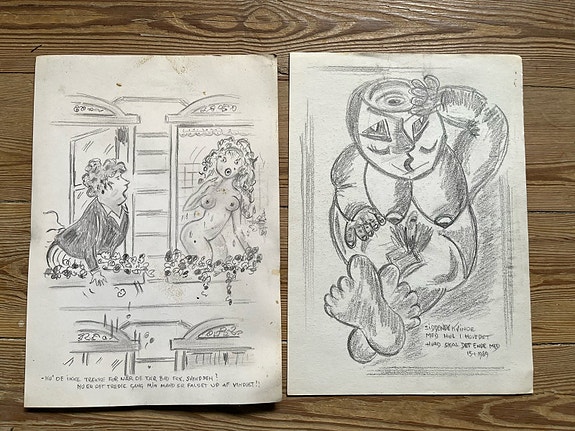 - KU' DE IKKE TRÆKKE FOR NÅR DE TAR BAD FRK. SVENDSEN!
NU ER DET TREDIE GANG MIN MAND ER FALDET UD AF VINDUET!!
SIDDENDE KVINDE
MED HUL I HOVEDET
HVORD SKAL DET ENDE MED